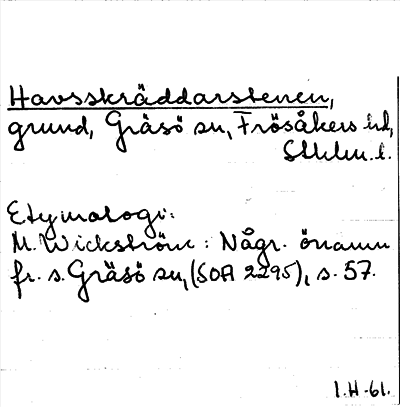 Havsskräddarstenen,
grund, Gräsö sn, Frösåkers hd,
Sthlm. l.
Etymologi:
M. Wickström: Någr. önamn
fr. s. Gräsö sn, (SOA 2295), s. 57.
I.H-61.